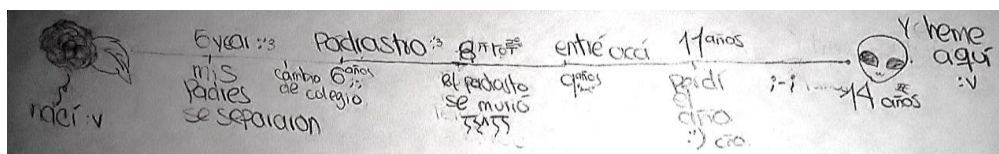 nací :v
5 year :3
mis
padres
se separaron
Padrastro :3
cambio 6 años
de colegio
el padrasto
se murió
entré acá
9 años
11 años
perdí
el
año
:') cio
;-;
14 años
Y heme
aquí
:v